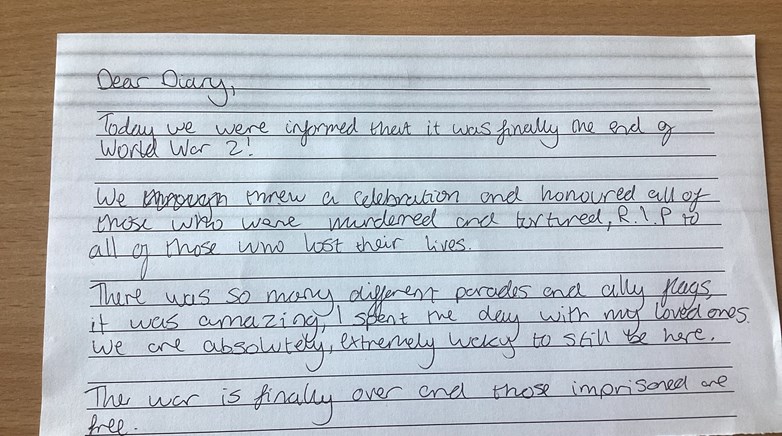 Dear Diary,
Today we were informed that it was finally the end of
World War 2!
We threw a celebration and honoured all of
those who were murdered and tortured, R.I.P to
all of those who lost their lives.
There was so many different parades and ally flags,
it was amazing, I spent the day with my loved ones.
We are absolutely, extremely lucky to still be here.
The war is finally over and those imprisoned are
free.